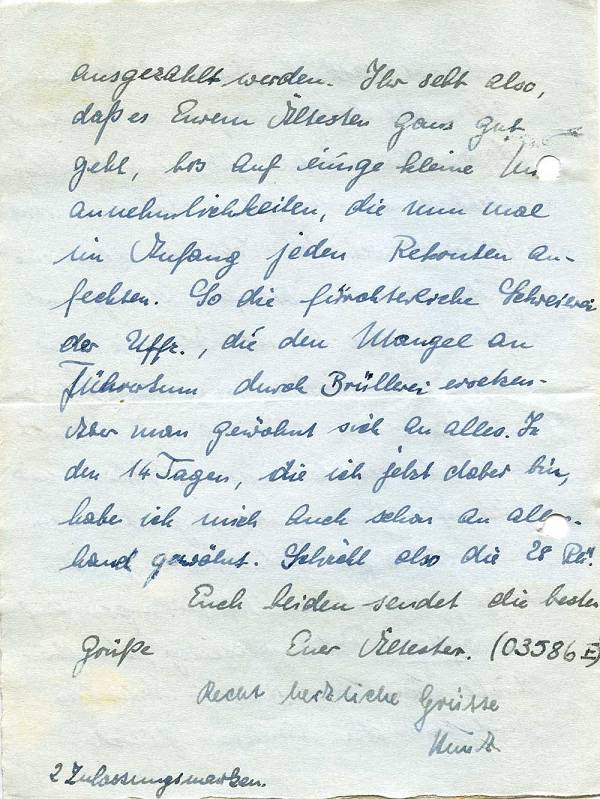 ausgezahlt werden. Ihr seht also,
daß es Eurem Ältesten ganz gut
geht, bis auf einige kleine Un
annehmlichkeiten, die nun mal
im Anfang jeden Rekruten an-
fechten. So die fürchterliche Schreierei
der Uffz., die den Mangel an
Führertum durch Brüllerei ersetzen.
Aber man gewöhnt sich an alles. In
den 14 Tagen, die ich jetzt dabei bin,
habe ich mich auch schon an aller-
hand gewöhnt. Schickt also die 28 RM.
Euch beiden sendet die besten
Grüße Euer Ältester. (03586 E)
Recht herzliche Grüsse
2 Zulassungsmarken.